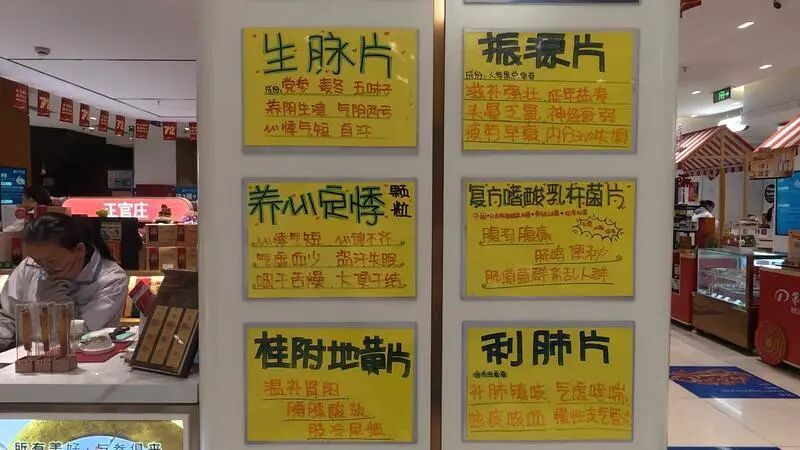 生脉片
成份:党参 麦冬 五味子
养阴生津 气阴两亏
心悸气短 自汗
振源片
滋补强壮、延年益寿
头晕乏力、神经衰弱
疲劳早衰、内分泌失调
养心定悸
颗粒
心悸气短 心神不齐
气虚血少 盗汗失眠
咽干舌燥、大便干结
复方嗜酸乳杆菌片
腹泻腹痛
肠鸣 便秘
肠道菌群紊乱人群
桂附地黄片
温补肾阳
腰膝酸软
肢冷尿频
利肺片
补肺镇咳 气虚哮喘
咳痰咳血 慢性支气管炎
正官庄
所有美好·与参俱来